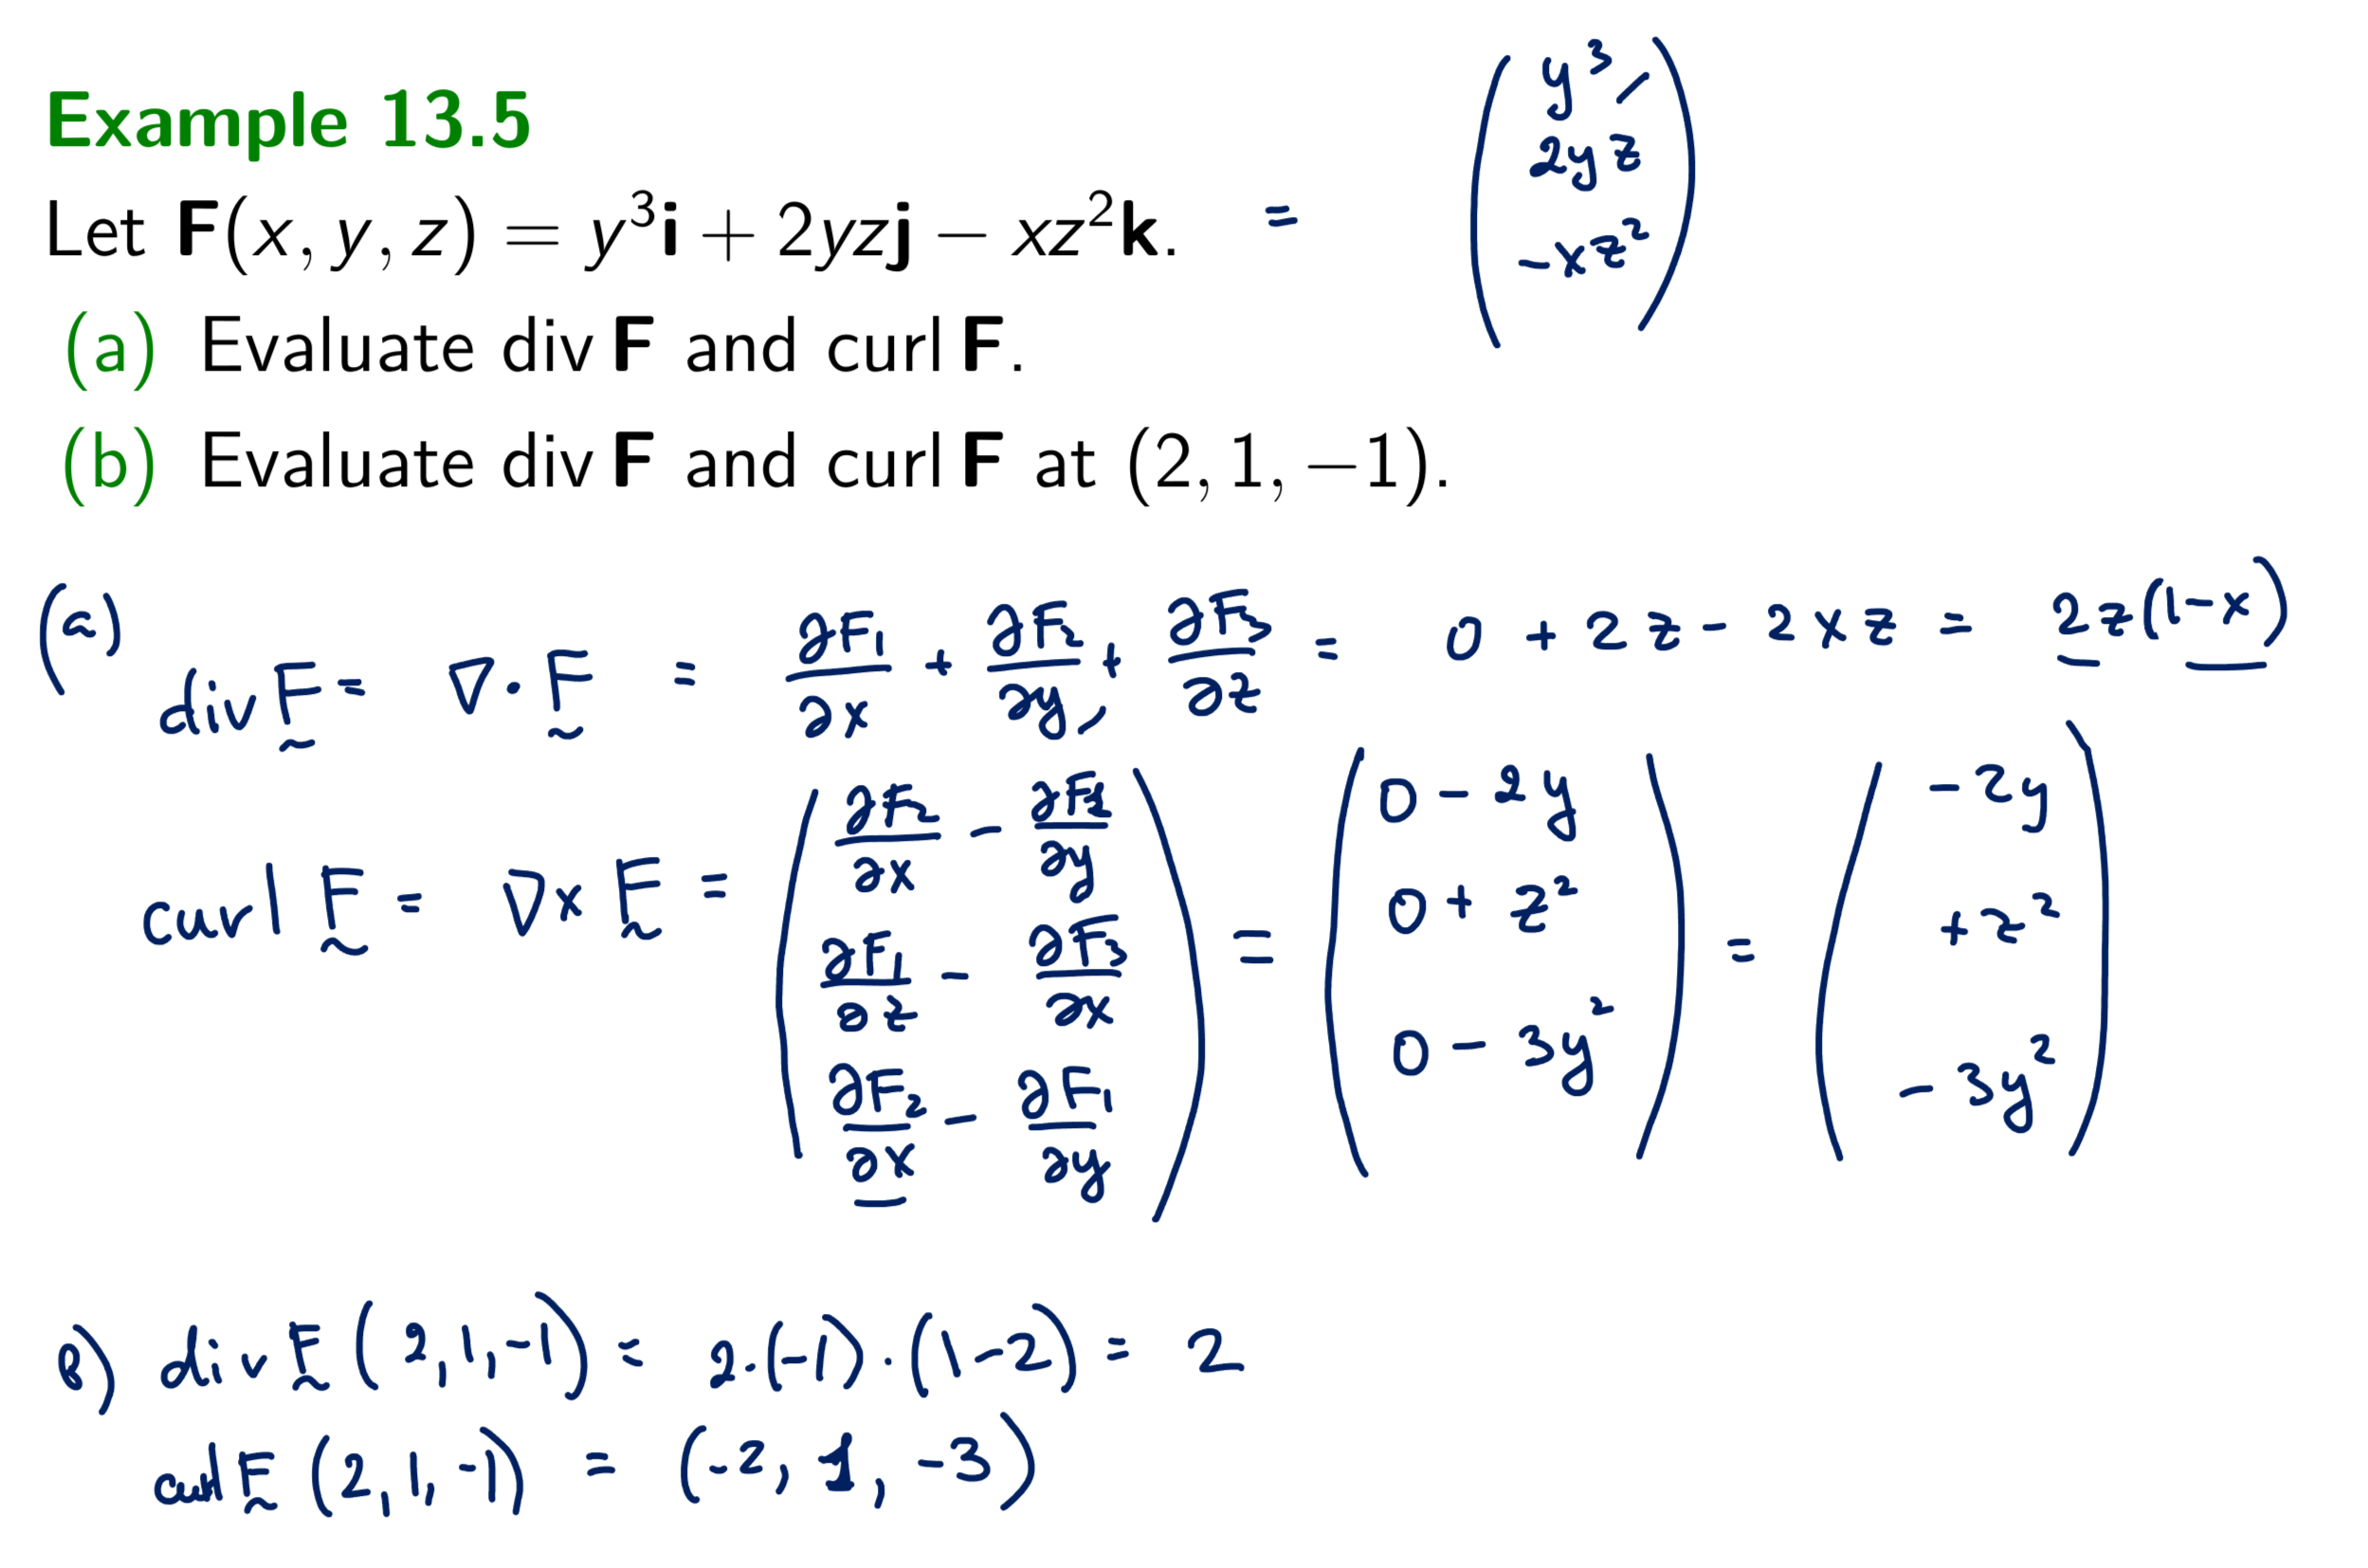 Example 13.5
Let F(x, y, z) = y³i + 2yzj − xz²k. = ( y³ / 2yz / −xz² )
(a) Evaluate div F and curl F.
(b) Evaluate div F and curl F at (2, 1, −1).
(a) div F = ∇ · F = ∂F₁/∂x + ∂F₂/∂y + ∂F₃/∂z = 0 + 2z − 2xz = 2z(1−x)
curl F = ∇ × F = ( ∂F₂/∂x − ∂F₂/∂y ; ∂F₁/∂z − ∂F₃/∂x ; ∂F₂/∂x − ∂F₁/∂y ) = ( 0 − 2y ; 0 + z² ; 0 − 3y² ) = ( −2y ; + z² ; − 3y² )
b) div F (2,1,−1) = 2·(−1)·(1−2) = 2
curl F (2,1,−1) = (−2, 1, −3)